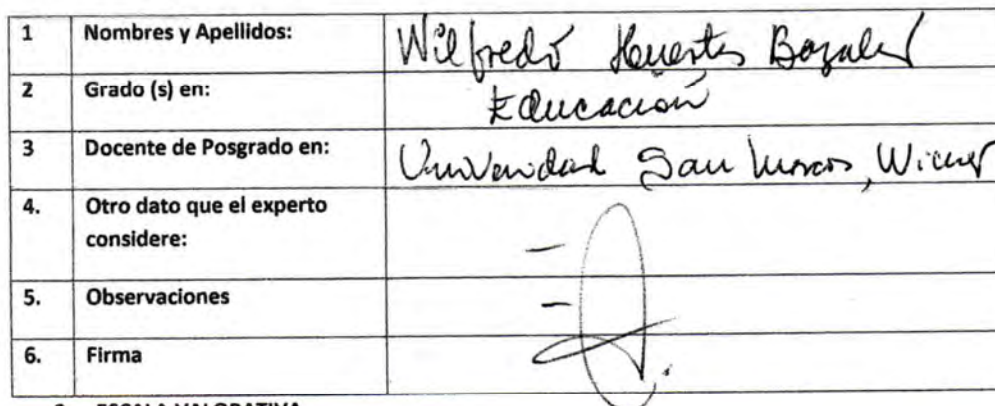 1 Nombres y Apellidos: Wilfredo Huertas Bazalar
2 Grado (s) en: Educación
3 Docente de Posgrado en: Universidad San Marcos, Wiener
4. Otro dato que el experto –
considere:
5. Observaciones –
6. Firma
ESCALA VALORATIVA